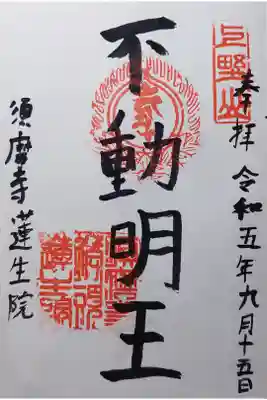 奉拝 令和五年九月十五日
不動明王
須磨寺 蓮生院
上野山